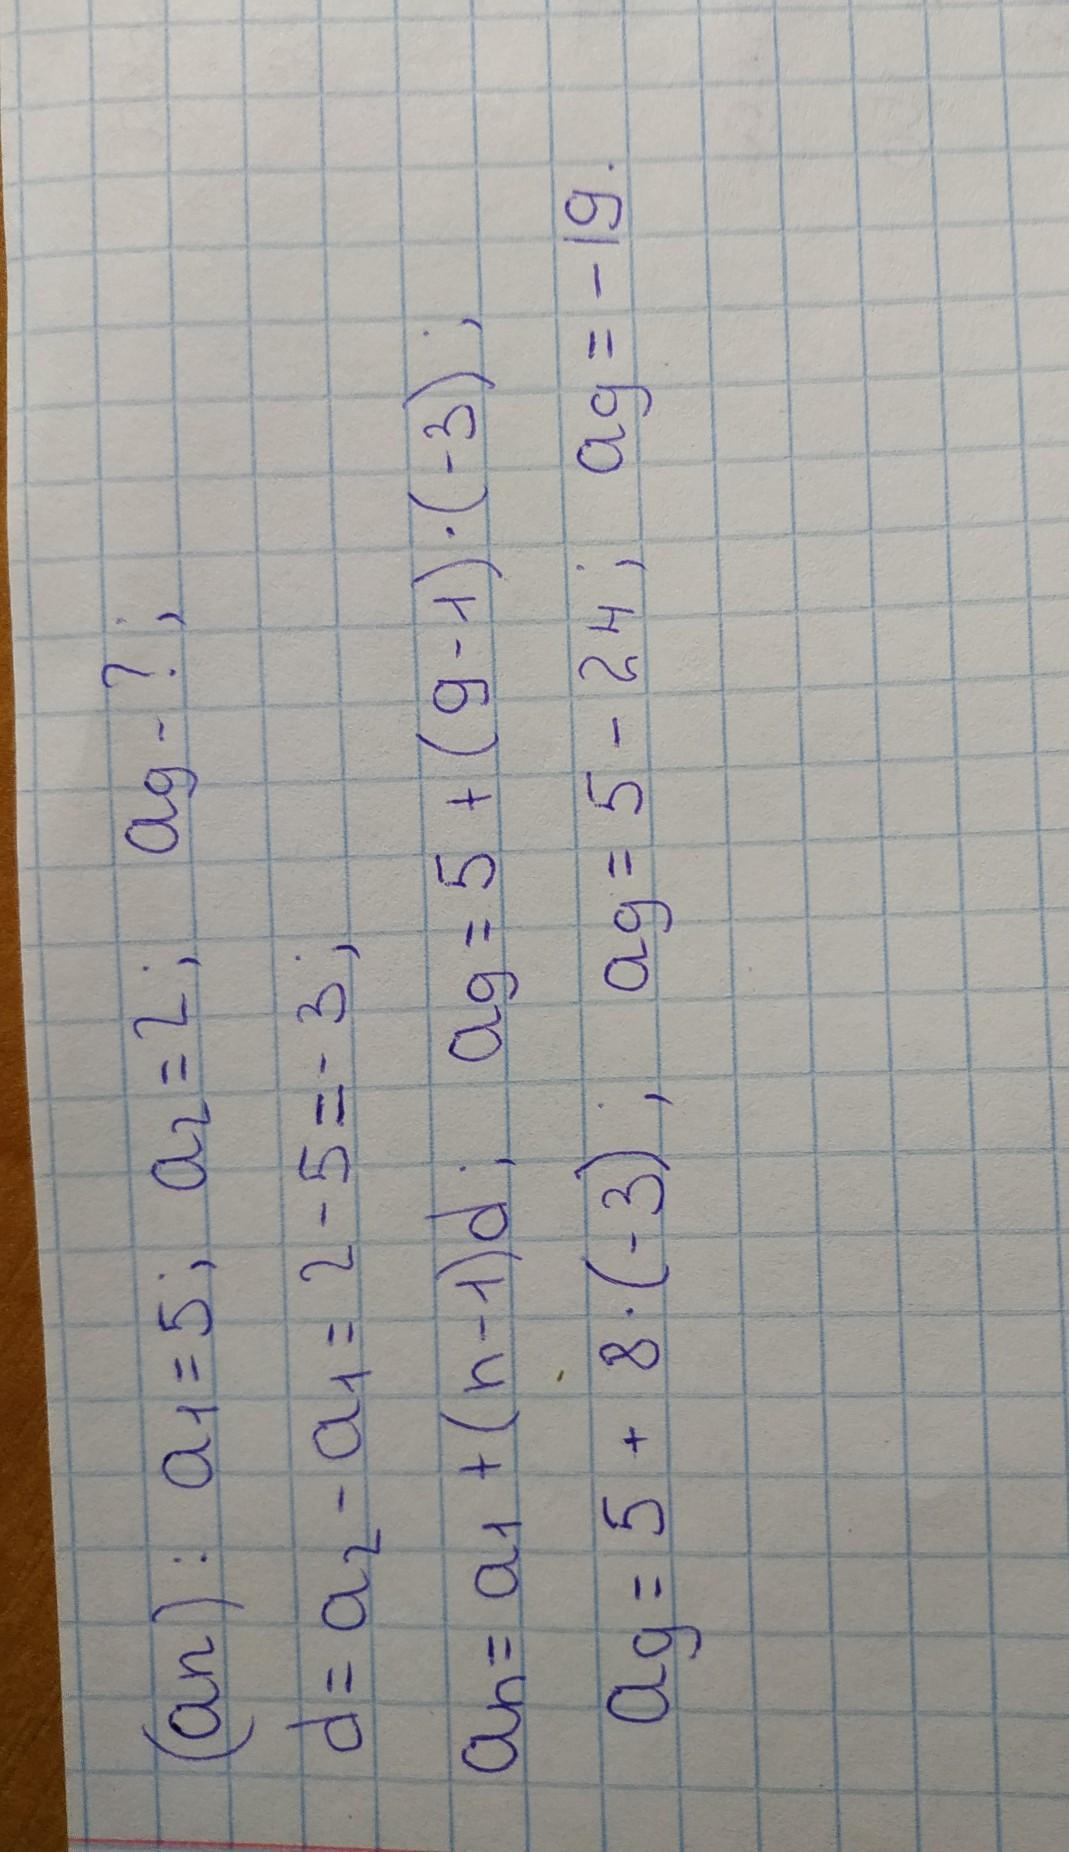 (an): a1=5; a2=2; a9-?;
d=a2-a1=2-5=-3;
an=a1+(n-1)d; a9=5+(9-1)·(-3);
a9=5+8·(-3); a9=5-24; a9=-19.